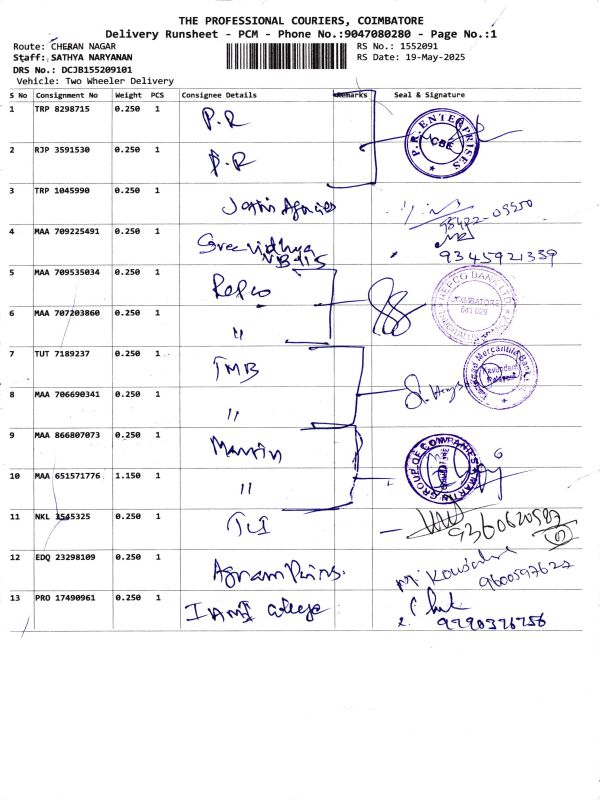 THE PROFESSIONAL COURIERS, COIMBATORE
Delivery Runsheet - PCM - Phone No.:9047080280 - Page No.:1
Route: CHERAN NAGAR
RS No.: 1552091
Staff: SATHYA NARYANAN
RS Date: 19-May-2025
DRS No.: DCJB155209101
Vehicle: Two Wheeler Delivery
S No Consignment No Weight PCS Consignee Details Remarks Seal & Signature
1 TRP 8298715 0.250 1 P.R
P.R. ENTERPRISES CBE
2 RJP 3591530 0.250 1 P.R
3 TRP 1045990 0.250 1
4 MAA 709225491 0.250 1 Sree Vidhya
9345921339
5 MAA 709535034 0.250 1 Repco
REPCO BANK LTD COIMBATORE 641 029
6 MAA 707203860 0.250 1 "
7 TUT 7189237 0.250 1 TMB
Tamilnad Mercantile Bank Ltd
8 MAA 706690341 0.250 1 "
9 MAA 866807073 0.250 1 Martin
MARTIN GROUP OF COMPANIES
10 MAA 651571776 1.150 1 "
11 NKL 3545325 0.250 1
9360620587
12 EDQ 23298109 0.250 1
9600597627
13 PRO 17490961 0.250 1 college
9790376756